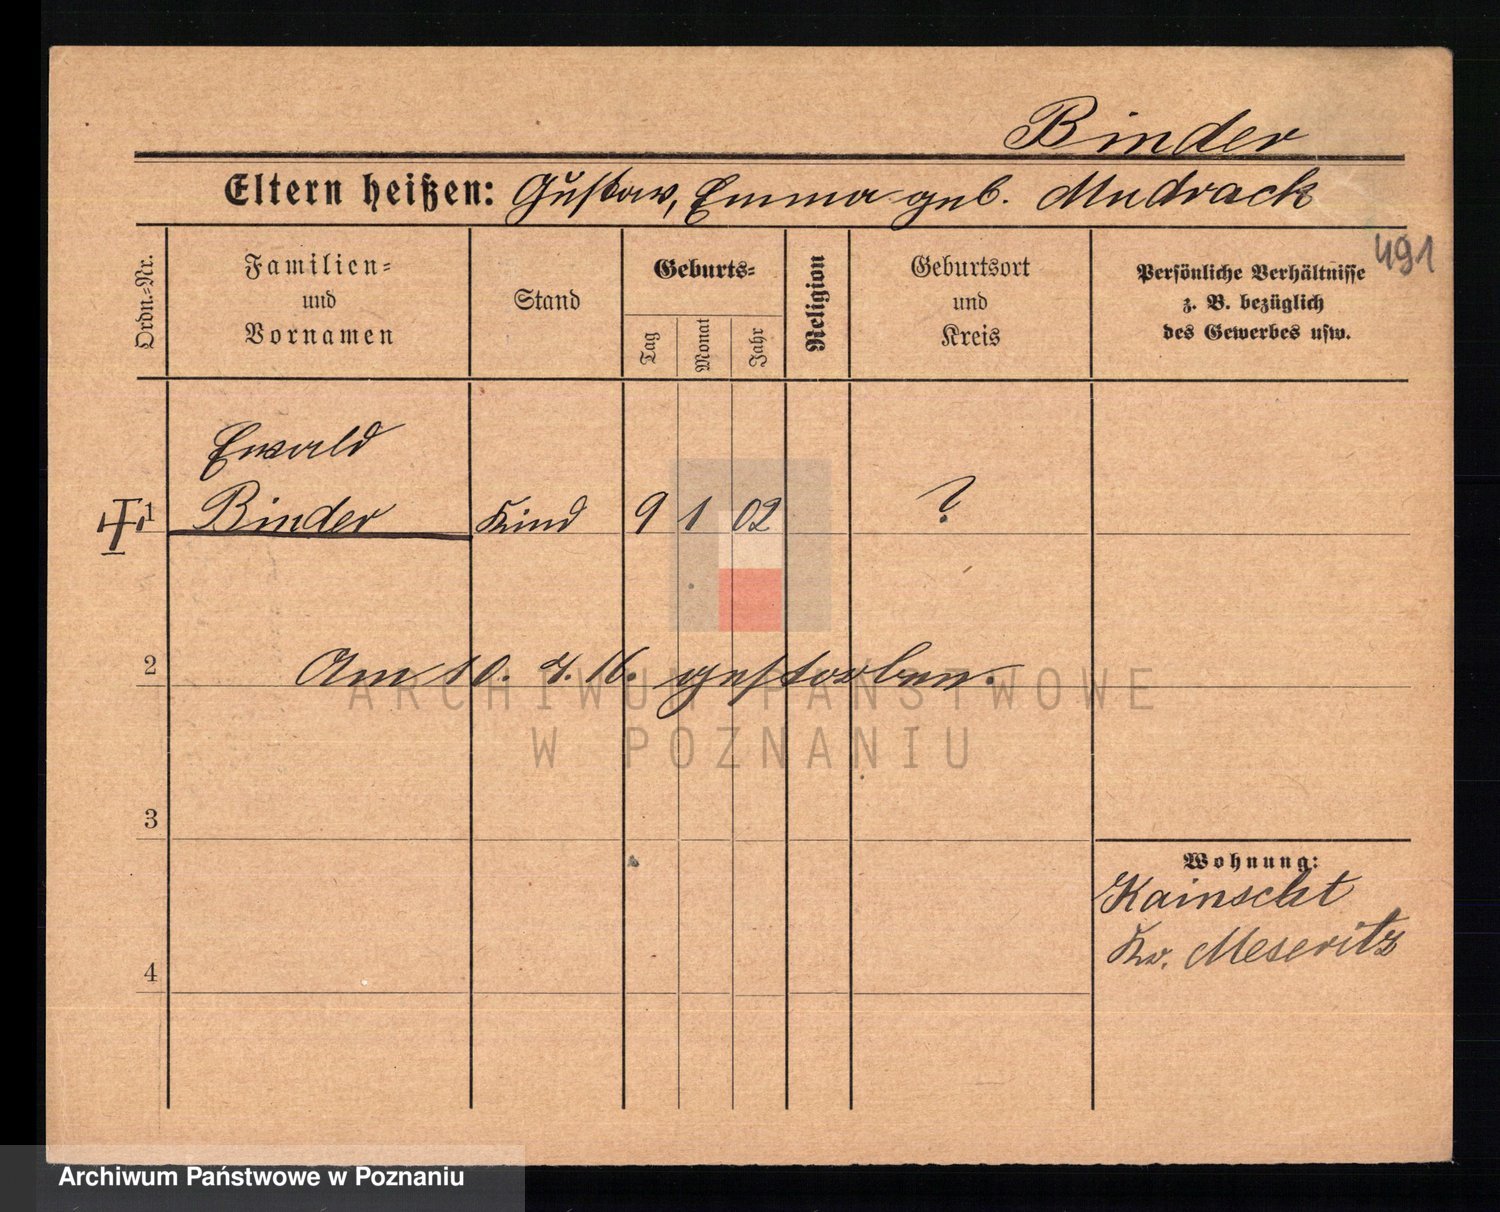 Binder
Eltern heißen: Gustav, Emma geb. Mudrack
491
Ordn.-Nr.
Familien-
und
Vornamen
Stand
Geburts-
Tag
Monat
Jahr
Religion
Geburtsort
und
Kreis
Persönliche Verhältnisse
z. B. bezüglich
des Gewerbes usw.
Ewald
1 Binder Kind 9 1 02 ?
2 Am 10. 7. 16. gestorben.
ARCHIWUM PAŃSTWOWE
W POZNANIU
3
Wohnung:
Kainscht
Kr. Meseritz
4
Archiwum Państwowe w Poznaniu